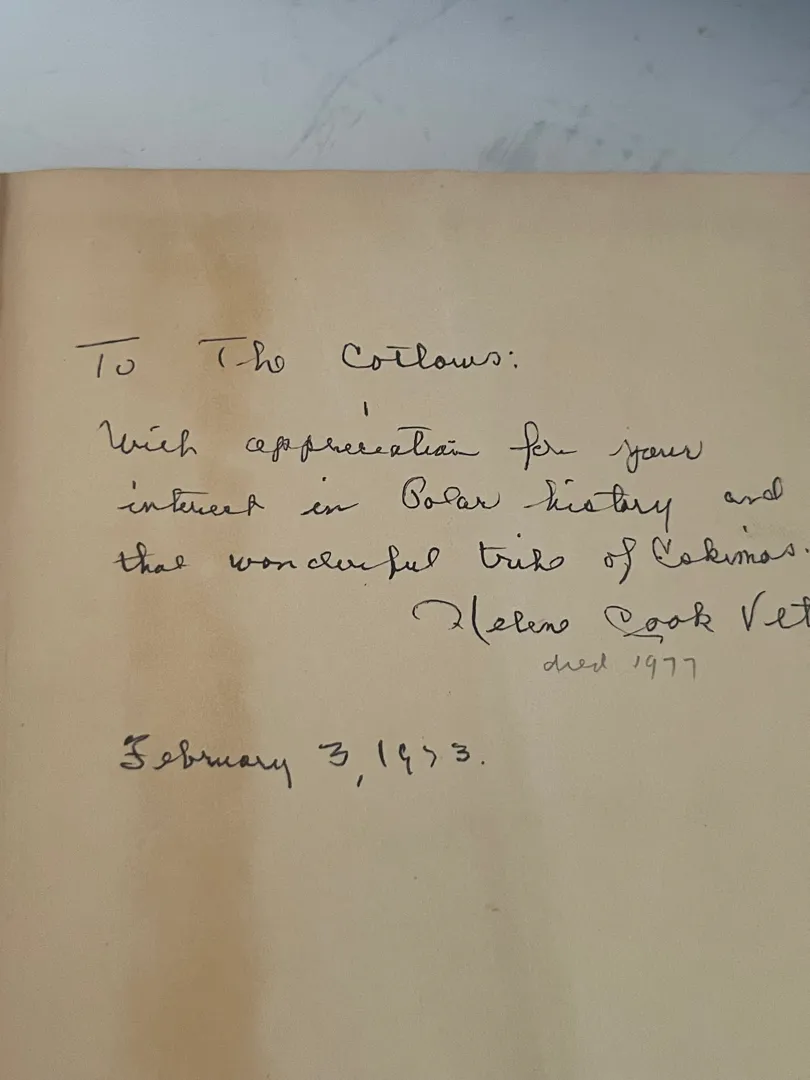 To The Cotlows:
With appreciation for your
interest in Polar history and
that wonderful tribe of Eskimos.
Helene Cook Vet
died 1977
February 3, 1973.